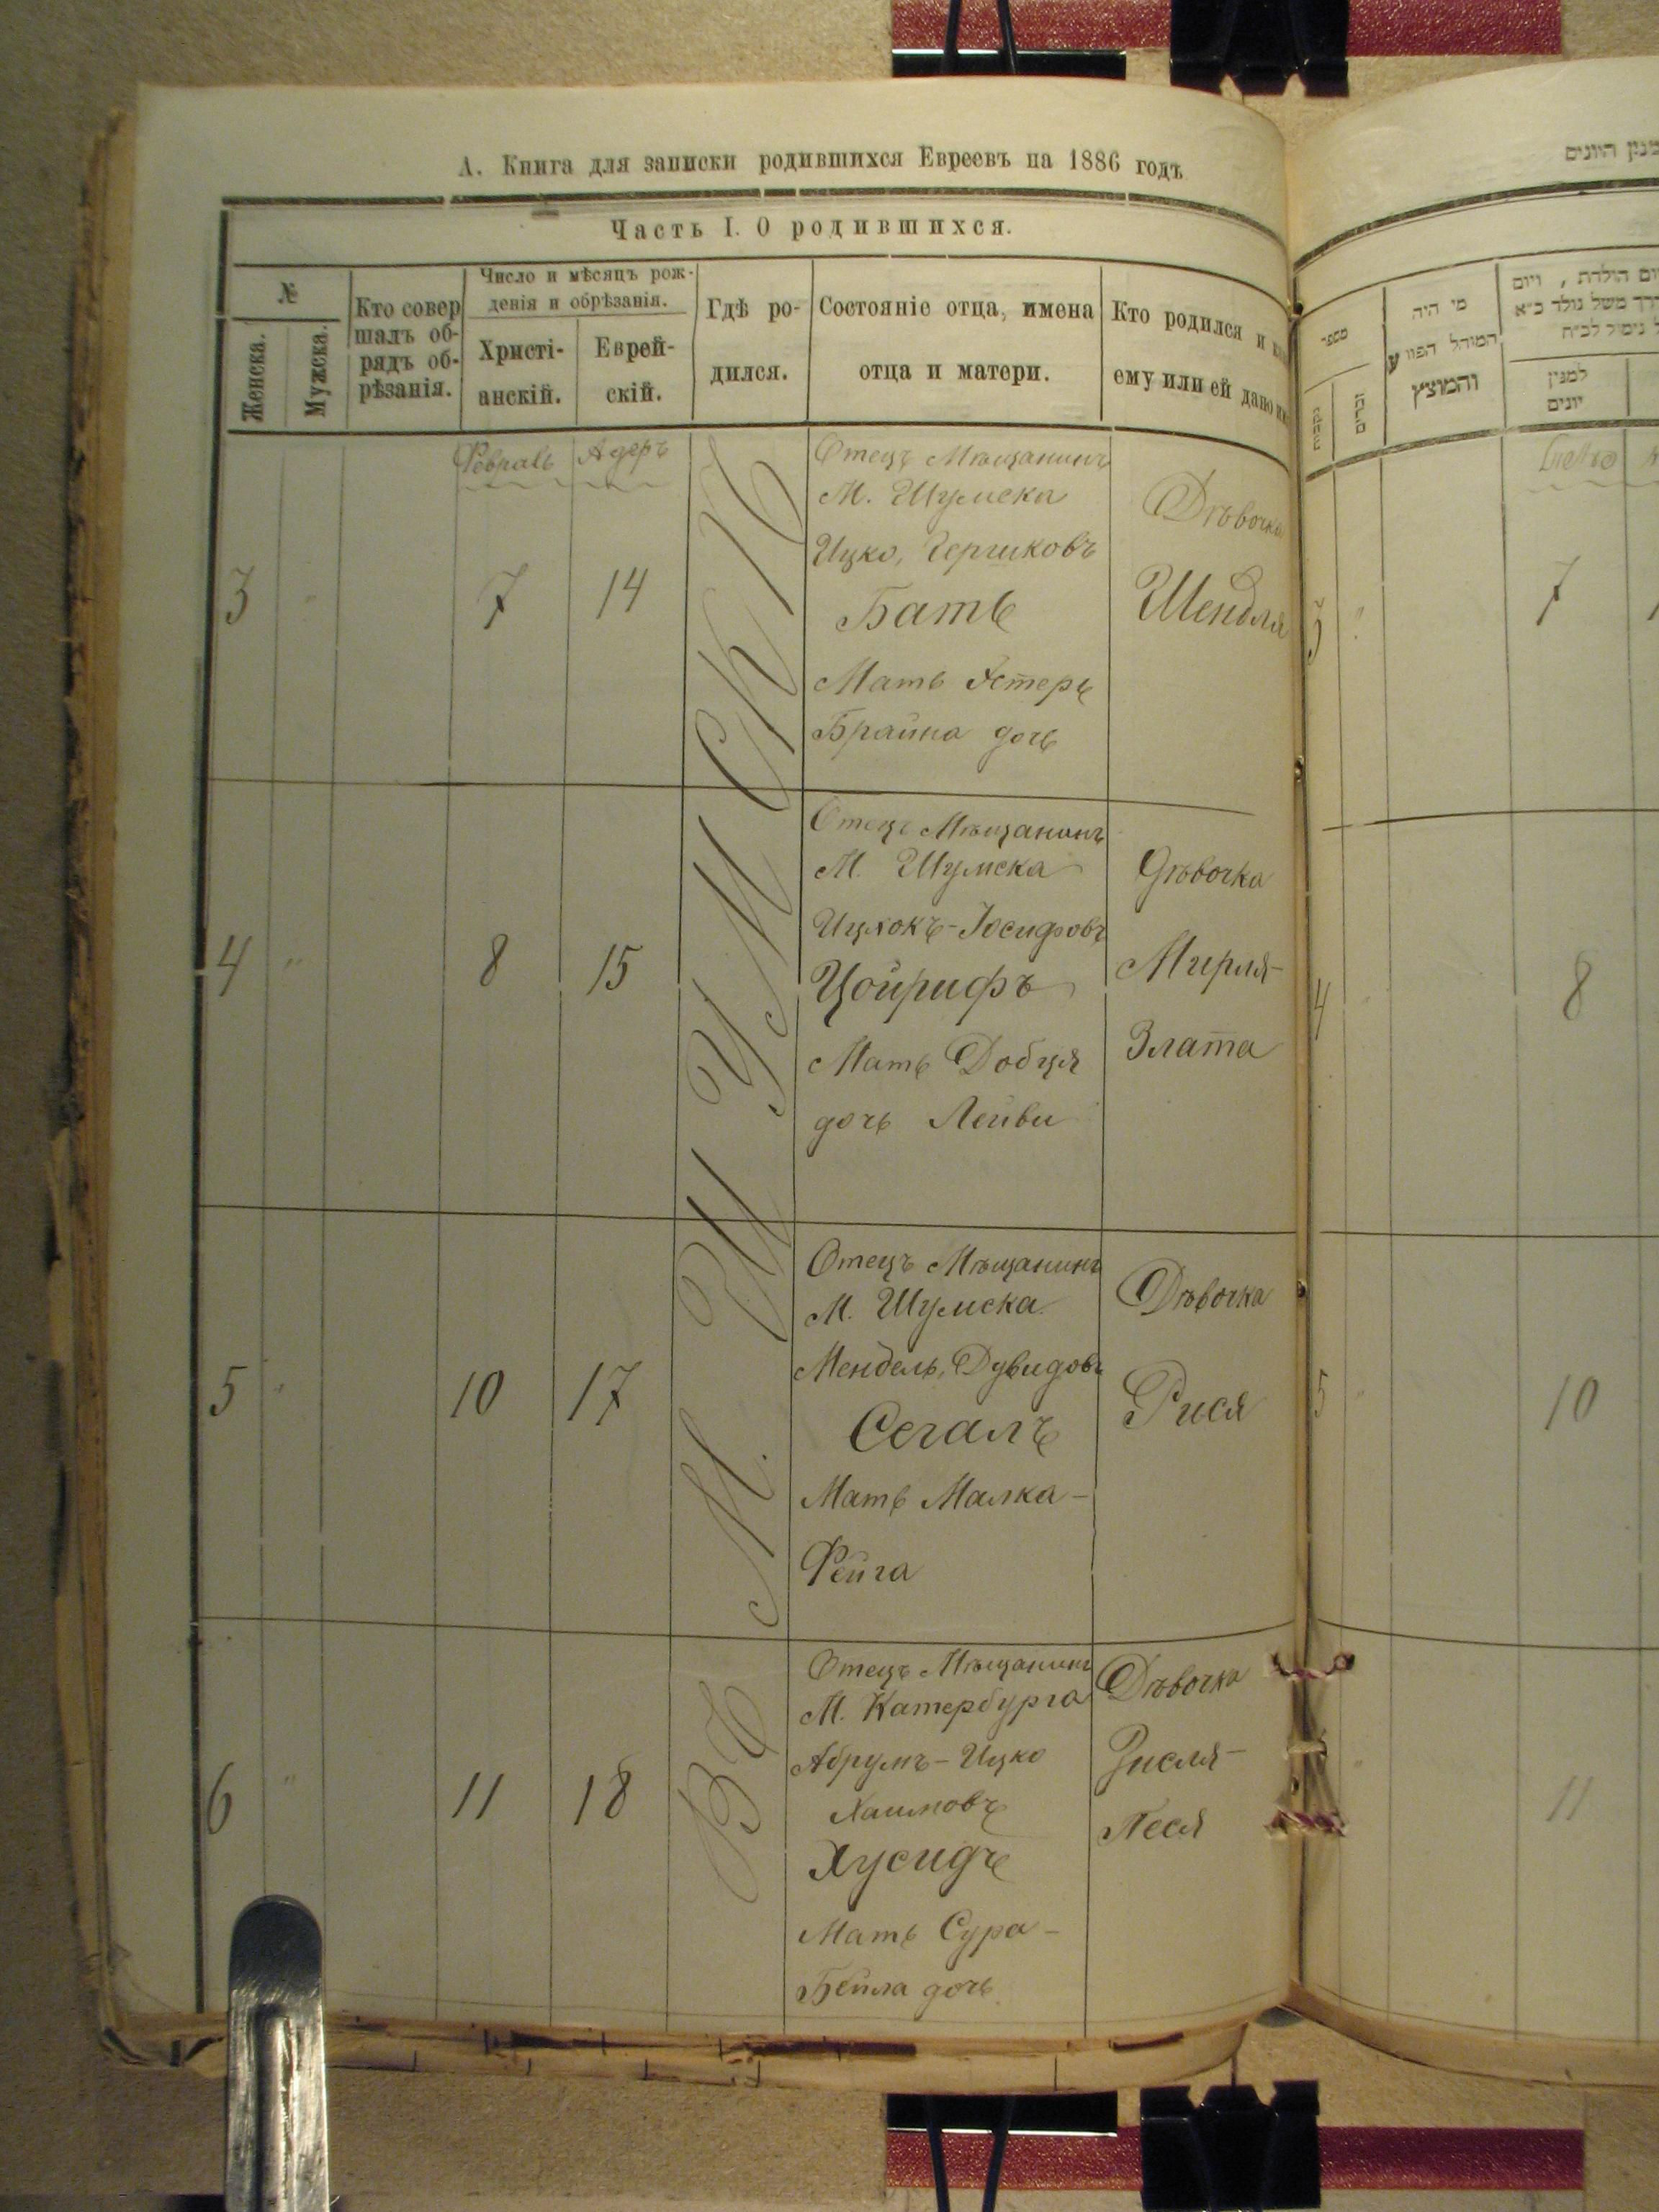 А. Книга для записки родившихся Евреевъ на 1886 годъ
Часть I. О родившихся.
№
Женска.
Мужска.
Кто совер
шалъ об-
рядъ об-
рѣзанія.
Число и мѣсяцъ рож-
денія и обрѣзанія.
Христі-
анскій.
Еврей-
скій.
Гдѣ ро-
дился.
Состояніе отца, имена
отца и матери.
Кто родился и
ему или ей дано
Февраль Адеръ
Въ М. Шумскѣ
3 " 7 14
Отецъ Мѣщанинъ
М. Шумска
Ицко, Гершковъ
Батъ
Мать Эстеръ
Брайна дочь
Дѣвочка
Шендля
4 " 8 15
Отецъ Мѣщанинъ
М. Шумска
Ицхокъ-Іосифовъ
Цойрифъ
Мать Добця
дочь Лейви
Дѣвочка
Мирля-
Злата
5 " 10 17
Отецъ Мѣщанинъ
М. Шумска
Мендель, Дувидовъ
Сегалъ
Мать Малка-
Фейга
Дѣвочка
Рися
6 " 11 18
Отецъ Мѣщанинъ
М. Катербурга
Абрумъ-Ицко
Хаимовъ
Хусидъ
Мать Сура-
Бейла дочь
Дѣвочка
Зисля-
Песя
למנין היונים
מספר
נקבות
זכרים
מי היה
המוהל הפורע
והמוצץ
יום הולדת, ויום
למנין
יונים
3 " 7
4 " 8
5 " 10
6 " 11